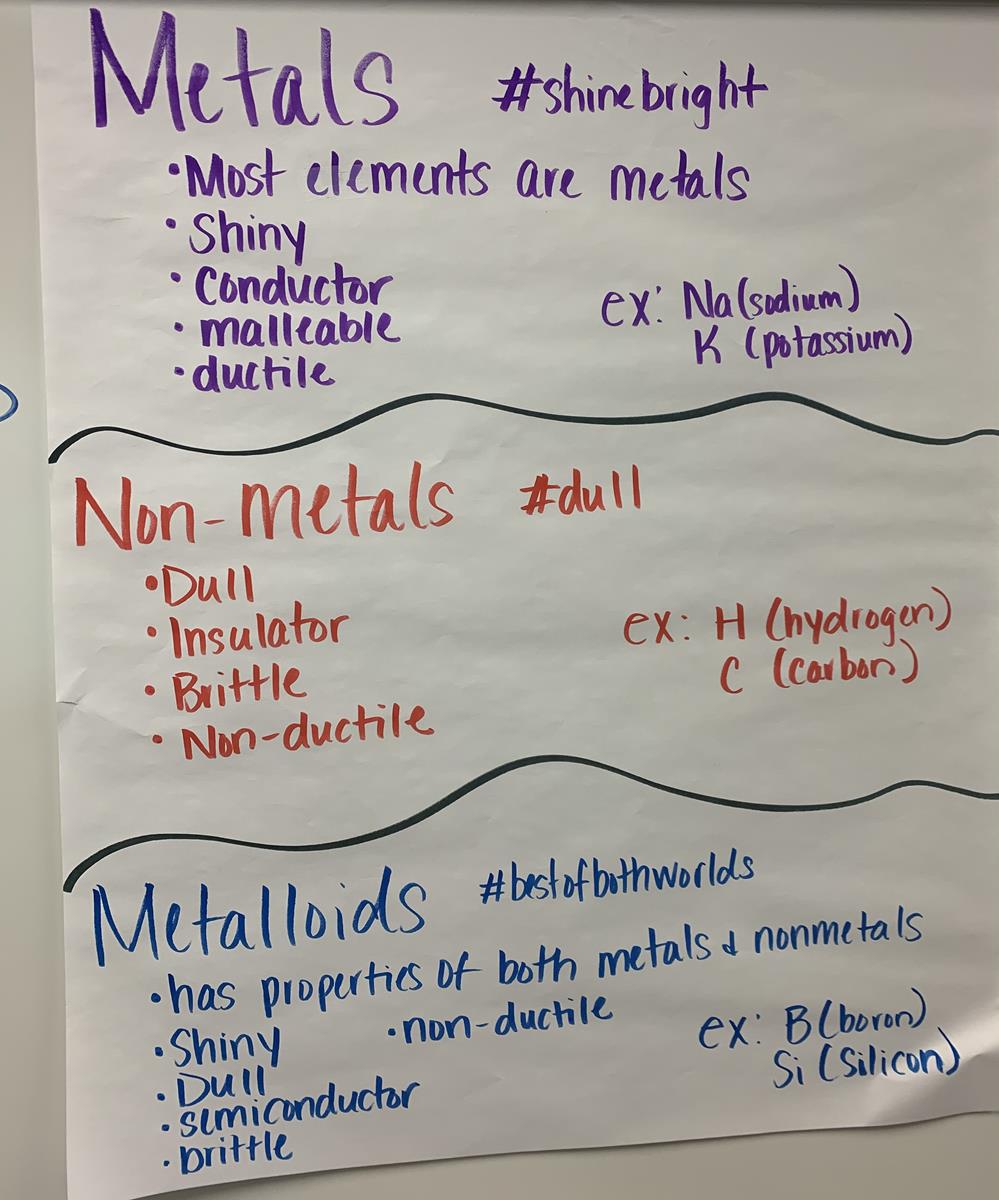 Metals #shinebright
•Most elements are metals
•Shiny
•Conductor
•malleable
•ductile
ex: Na (sodium)
K (potassium)
Non-metals #dull
•Dull
•Insulator
•Brittle
•Non-ductile
ex: H (hydrogen)
C (carbon)
Metalloids #bestofbothworlds
•has properties of both metals & nonmetals
•Shiny •non-ductile
•Dull
•semiconductor
•brittle
ex: B (boron)
Si (Silicon)